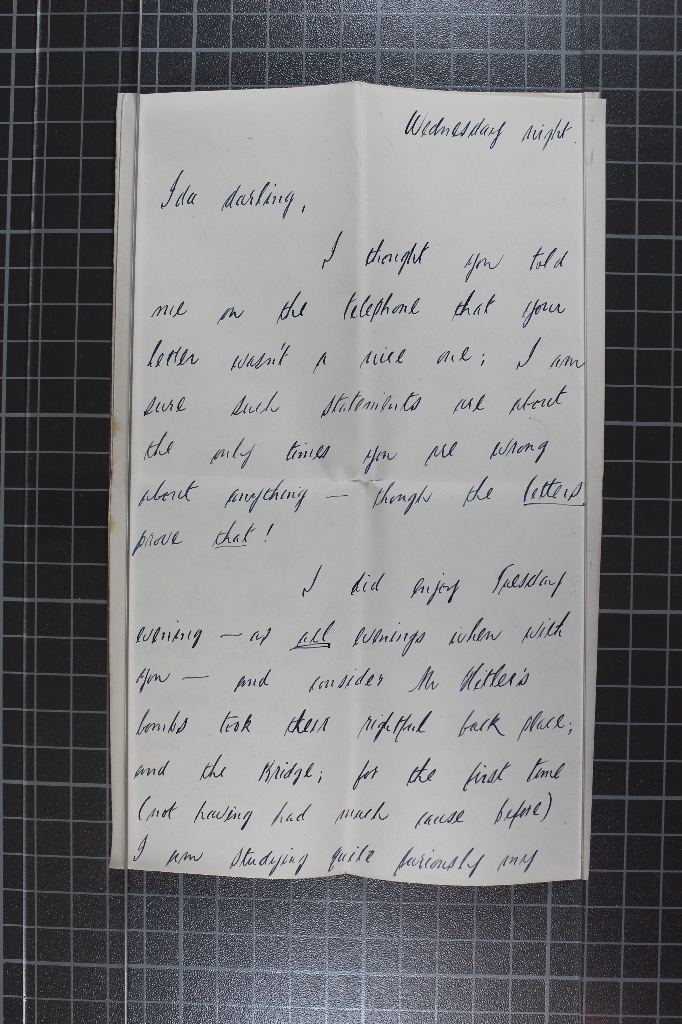 Wednesday night.
Ida darling,
I thought you told
me on the telephone that your
letter wasn't a nice one; I am
sure such statements are about
the only times you are wrong
about anything — though the letters
prove that!
I did enjoy Tuesday
evening — as all evenings when with
you — and consider Mr Hitler's
bombs took their rightful back place;
and the Bridge; for the first time
(not having had much cause before)
I am studying quite furiously my